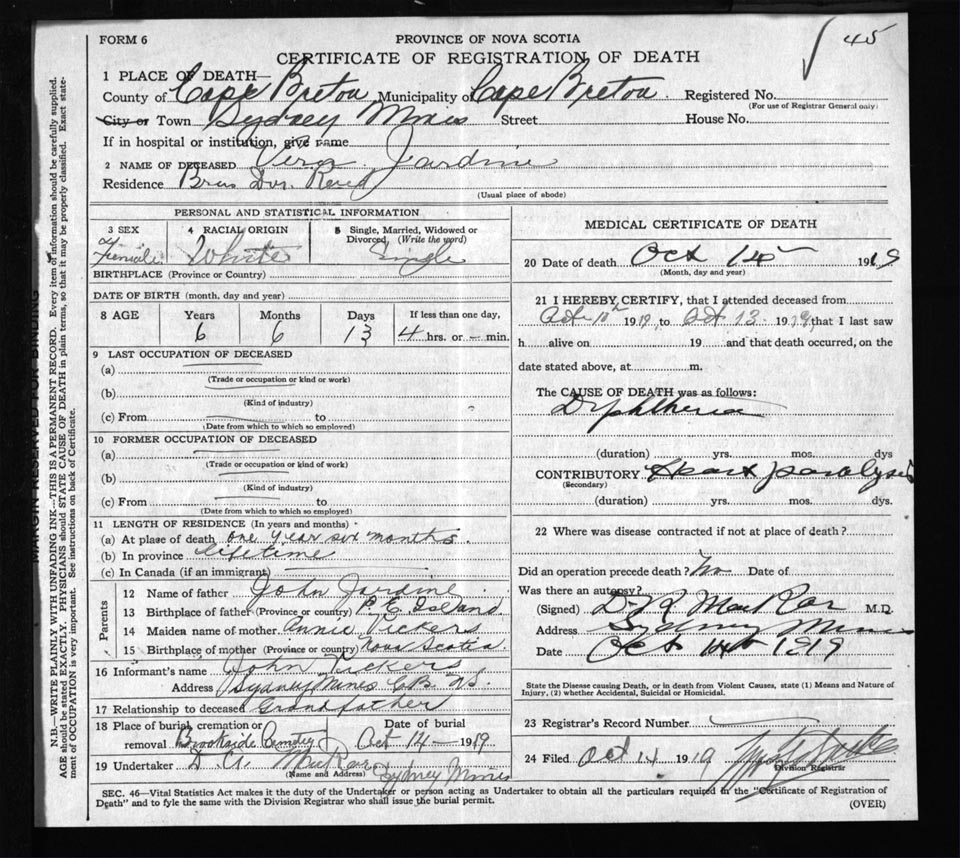 45
FORM 6
PROVINCE OF NOVA SCOTIA
CERTIFICATE OF REGISTRATION OF DEATH
1 PLACE OF DEATH—
County of Cape Breton Municipality of Cape Breton Registered No.
(For use of Registrar General only)
City or Town Sydney Mines Street House No.
If in hospital or institution, give name
2 NAME OF DECEASED Vera Jardine
Residence Bras Dor Road
(Usual place of abode)
PERSONAL AND STATISTICAL INFORMATION
3 SEX 4 RACIAL ORIGIN 5 Single, Married, Widowed or Divorced, (Write the word)
Female White Single
BIRTHPLACE (Province or Country)
DATE OF BIRTH (month, day and year)
8 AGE Years Months Days If less than one day,
6 6 13 4 hrs. or — min.
9 LAST OCCUPATION OF DECEASED
(a)
(Trade or occupation or kind or work)
(b)
(Kind of industry)
(c) From to
(Date from which to which so employed)
10 FORMER OCCUPATION OF DECEASED
(a)
(Trade or occupation or kind of work)
(b)
(Kind of industry)
(c) From to
(Date from which to which so employed)
11 LENGTH OF RESIDENCE (In years and months)
(a) At place of death one year six months.
(b) In province lifetime
(c) In Canada (if an immigrant)
Parents
12 Name of father John Jardine
13 Birthplace of father (Province or country) P. E. Island.
14 Maiden name of mother Annie Vickers
15 Birthplace of mother (Province or country) Nova Scotia
16 Informant's name John Vickers
Address Sydney Mines C.B. N.S.
17 Relationship to deceased Grandfather
18 Place of burial, cremation or removal Brookside Date of burial Oct 14 — 1919
19 Undertaker Sydney Mines
(Name and Address)
MEDICAL CERTIFICATE OF DEATH
20 Date of death Oct 1919
(Month, day and year)
21 I HEREBY CERTIFY, that I attended deceased from
Oct 10th 1919, to Oct 13 1919, that I last saw
h alive on 19 and that death occurred, on the
date stated above, at m.
The CAUSE OF DEATH was as follows:
Diphtheria
(duration) yrs. mos. dys
CONTRIBUTORY Heart paralysis
(Secondary)
(duration) yrs. mos. dys.
22 Where was disease contracted if not at place of death?
Did an operation precede death? No Date of
Was there an autopsy?
(Signed) M.D.
Address Sydney Mines
Date Oct 14th 1919
State the Disease causing Death, or in death from Violent Causes, state (1) Means and Nature of
Injury, (2) whether Accidental, Suicidal or Homicidal.
23 Registrar's Record Number
24 Filed Oct 14 1919
Division Registrar
SEC. 46—Vital Statistics Act makes it the duty of the Undertaker or person acting as Undertaker to obtain all the particulars required in the "Certificate of Registration of
Death" and to fyle the same with the Division Registrar who shall issue the burial permit.
(OVER)
MARGIN RESERVED FOR BINDING
N.B.—WRITE PLAINLY WITH UNFADING INK—THIS IS A PERMANENT RECORD. Every item of information should be carefully supplied.
AGE should be stated EXACTLY. PHYSICIANS should STATE CAUSE OF DEATH in plain terms, so that it may be properly classified. Exact state-
ment of OCCUPATION is very important. See instructions on back of Certificate.